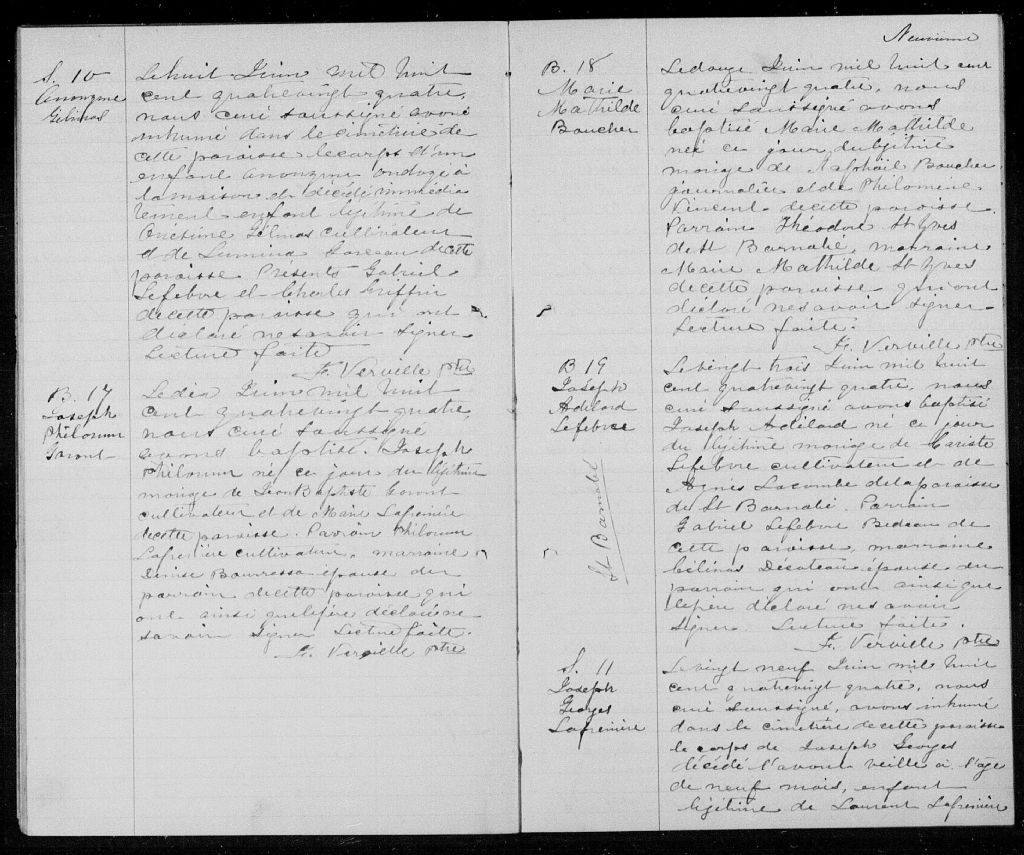 S. 10
Anonyme
Gélinas
Le huit Juin mil huit
cent quatrevingt quatre,
nous curé soussigné avons
inhumé dans le cimetière de
cette paroisse le corps d'un
enfant anonyme ondoyé à
la maison et décédé immédia
tement enfant légitime de
Onésime Gélinas cultivateur
et de Lumina de cette
paroisse Présents Gabriel
Lefebvre et Charles Griffin
de cette paroisse qui ont
déclaré ne savoir signer
Lecture faite
Verville ptre
B. 17
Joseph
Philorum
Le dix Juin mil huit
cent quatrevingt quatre,
nous curé soussigné
avons baptisé Joseph
Philorum né ce jour du légitime
mariage de Jean Baptiste
cultivateur et de Marie Lafrenière
de cette paroisse. Parrain Philorum
Lafrenière cultivateur, marraine
Denise Bourressa épouse du
parrain de cette paroisse qui
ont ainsi que le père déclaré ne
savoir signer Lecture faite.
Verville ptre
Neuvième
B. 18
Marie
Mathilde
Boucher
Le douze Juin mil huit cent
quatrevingt quatre, nous
curé soussigné avons
baptisé Marie Mathilde
née ce jour du légitime
mariage de Raphaël Boucher
journalier et de Philomène
Vincent de cette paroisse.
Parrain Théodore St Yves
de St Barnabé, marraine
Marie Mathilde St Yves
de cette paroisse qui ont
déclaré ne savoir signer
Lecture faite.
Verville ptre
B 19
Joseph
Adélard
Lefebvre
St Barnabé
Le vingt trois Juin mil huit
cent quatrevingt quatre, nous
curé soussigné avons baptisé
Joseph Adélard né ce jour
du légitime mariage de
Lefebvre cultivateur et de
Agnès Lacombe de la paroisse
de St Barnabé. Parrain
Gabriel Lefebvre Bedeau de
cette paroisse, marraine
épouse du
parrain qui ont ainsi que
le père déclaré ne savoir
signer. Lecture faite.
Verville ptre
S. 11
Joseph
Georges
Lafrenière
Le vingt neuf Juin mil huit
cent quatrevingt quatre, nous
curé soussigné, avons inhumé
dans le cimetière de cette paroisse
le corps de Joseph Georges
décédé l'avant veille à l'age
de neuf mois, enfant
légitime de Laurent Lafrenière